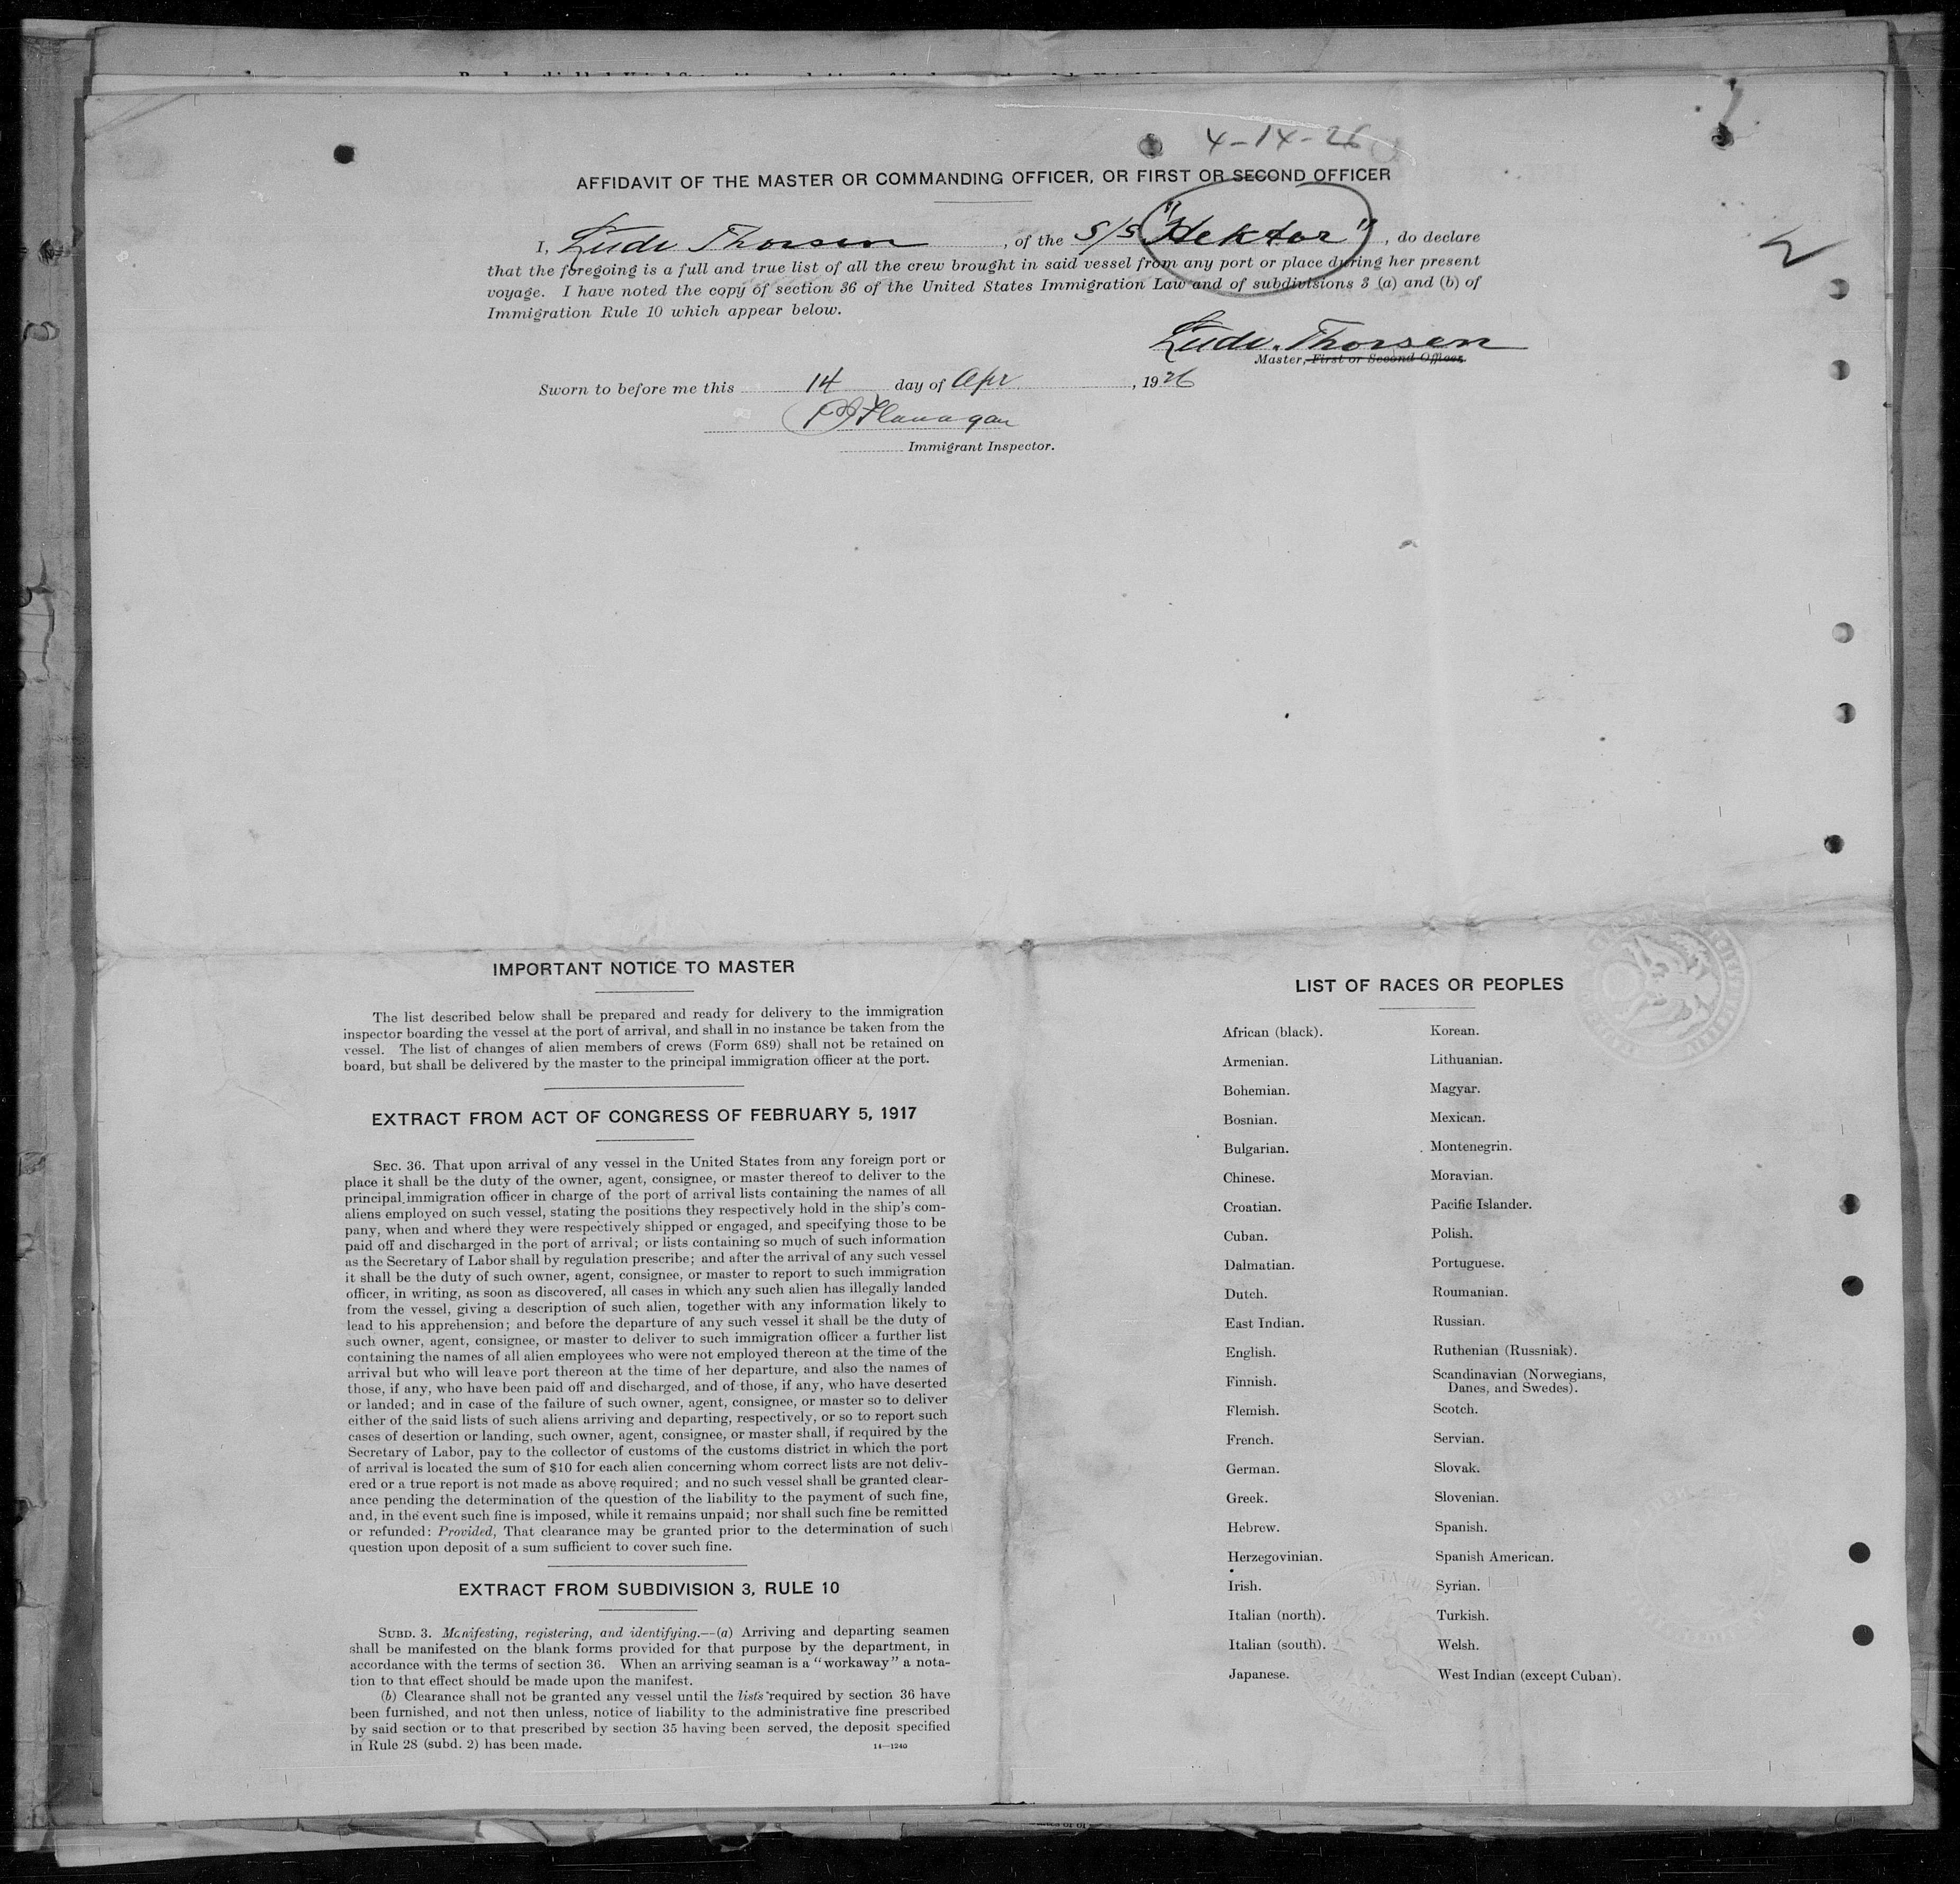 4-14-26
AFFIDAVIT OF THE MASTER OR COMMANDING OFFICER, OR FIRST OR SECOND OFFICER
I, Ludv. Thorsen, of the S/S "Hektor", do declare
that the foregoing is a full and true list of all the crew brought in said vessel from any port or place during her present
voyage. I have noted the copy of section 36 of the United States Immigration Law and of subdivisions 3 (a) and (b) of
Immigration Rule 10 which appear below.
Ludv. Thorsen
Master, First or Second Officer.
Sworn to before me this 14 day of Apr, 1926
Flanagan
Immigrant Inspector.
IMPORTANT NOTICE TO MASTER
The list described below shall be prepared and ready for delivery to the immigration
inspector boarding the vessel at the port of arrival, and shall in no instance be taken from the
vessel. The list of changes of alien members of crews (Form 689) shall not be retained on
board, but shall be delivered by the master to the principal immigration officer at the port.
EXTRACT FROM ACT OF CONGRESS OF FEBRUARY 5, 1917
SEC. 36. That upon arrival of any vessel in the United States from any foreign port or
place it shall be the duty of the owner, agent, consignee, or master thereof to deliver to the
principal immigration officer in charge of the port of arrival lists containing the names of all
aliens employed on such vessel, stating the positions they respectively hold in the ship's com-
pany, when and where they were respectively shipped or engaged, and specifying those to be
paid off and discharged in the port of arrival; or lists containing so much of such information
as the Secretary of Labor shall by regulation prescribe; and after the arrival of any such vessel
it shall be the duty of such owner, agent, consignee, or master to report to such immigration
officer, in writing, as soon as discovered, all cases in which any such alien has illegally landed
from the vessel, giving a description of such alien, together with any information likely to
lead to his apprehension; and before the departure of any such vessel it shall be the duty of
such owner, agent, consignee, or master to deliver to such immigration officer a further list
containing the names of all alien employees who were not employed thereon at the time of the
arrival but who will leave port thereon at the time of her departure, and also the names of
those, if any, who have been paid off and discharged, and of those, if any, who have deserted
or landed; and in case of the failure of such owner, agent, consignee, or master so to deliver
either of the said lists of such aliens arriving and departing, respectively, or so to report such
cases of desertion or landing, such owner, agent, consignee, or master shall, if required by the
Secretary of Labor, pay to the collector of customs of the customs district in which the port
of arrival is located the sum of $10 for each alien concerning whom correct lists are not deliv-
ered or a true report is not made as above required; and no such vessel shall be granted clear-
ance pending the determination of the question of the liability to the payment of such fine,
and, in the event such fine is imposed, while it remains unpaid; nor shall such fine be remitted
or refunded: Provided, That clearance may be granted prior to the determination of such
question upon deposit of a sum sufficient to cover such fine.
EXTRACT FROM SUBDIVISION 3, RULE 10
SUBD. 3. Manifesting, registering, and identifying.—(a) Arriving and departing seamen
shall be manifested on the blank forms provided for that purpose by the department, in
accordance with the terms of section 36. When an arriving seaman is a "workaway" a nota-
tion to that effect should be made upon the manifest.
(b) Clearance shall not be granted any vessel until the lists required by section 36 have
been furnished, and not then unless, notice of liability to the administrative fine prescribed
by said section or to that prescribed by section 35 having been served, the deposit specified
in Rule 28 (subd. 2) has been made.
14—1240
LIST OF RACES OR PEOPLES
African (black).
Armenian.
Bohemian.
Bosnian.
Bulgarian.
Chinese.
Croatian.
Cuban.
Dalmatian.
Dutch.
East Indian.
English.
Finnish.
Flemish.
French.
German.
Greek.
Hebrew.
Herzegovinian.
Irish.
Italian (north).
Italian (south).
Japanese.
Korean.
Lithuanian.
Magyar.
Mexican.
Montenegrin.
Moravian.
Pacific Islander.
Polish.
Portuguese.
Roumanian.
Russian.
Ruthenian (Russniak).
Scandinavian (Norwegians,
Danes, and Swedes).
Scotch.
Servian.
Slovak.
Slovenian.
Spanish.
Spanish American.
Syrian.
Turkish.
Welsh.
West Indian (except Cuban).